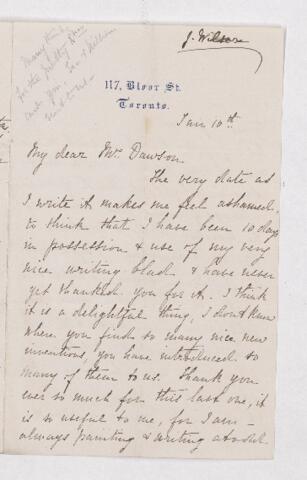 J. Wilson
Many thanks
for the pretty
card you
sent
117, Bloor St.
Toronto.
Jan 10th
My dear Mr. Dawson.
The very date as
I write it makes me feel ashamed,
to think that I have been 10 days
in possession & use of my very
nice writing block & have never
yet thanked you for it. I think
it is a delightful thing, I don't know
where you find so many nice new
inventions, you have introduced so
many of them to us. Thank you
ever so much for this last one, it
is so useful to me, for I am
always painting & writing